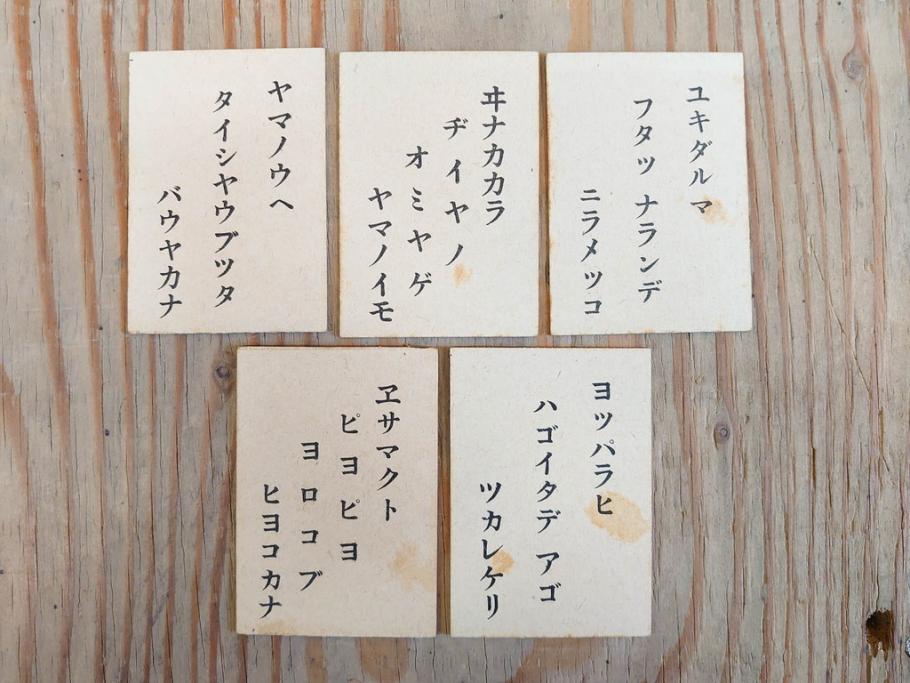 ユキダルマ
フタツ ナランデ
ニラメツコ
ヰナカカラ
ヂイヤノ
オミヤゲ
ヤマノイモ
ヤマノウヘ
タイシヤウブツタ
バウヤカナ
ヨツパラヒ
ハゴイタデ アゴ
ツカレケリ
ヱサマクト
ピヨピヨ
ヨロコブ
ヒヨコカナ